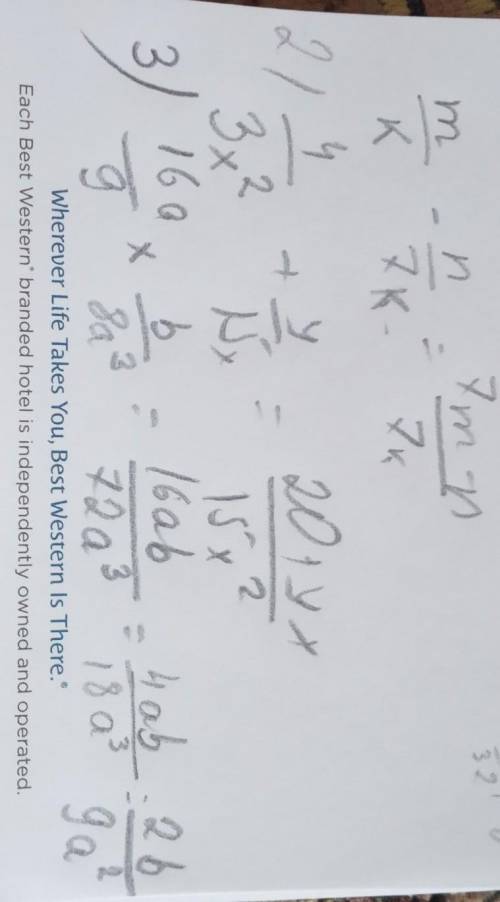 m/k - n/7k = 7m-n/7k
2) 4/3x² + y/15x = 20+yx/15x²
3) 16a/9 x b/8a³ = 16ab/72a³ = 4ab/18a³ = 2b/9a²
Wherever Life Takes You, Best Western Is There.®
Each Best Western® branded hotel is independently owned and operated.